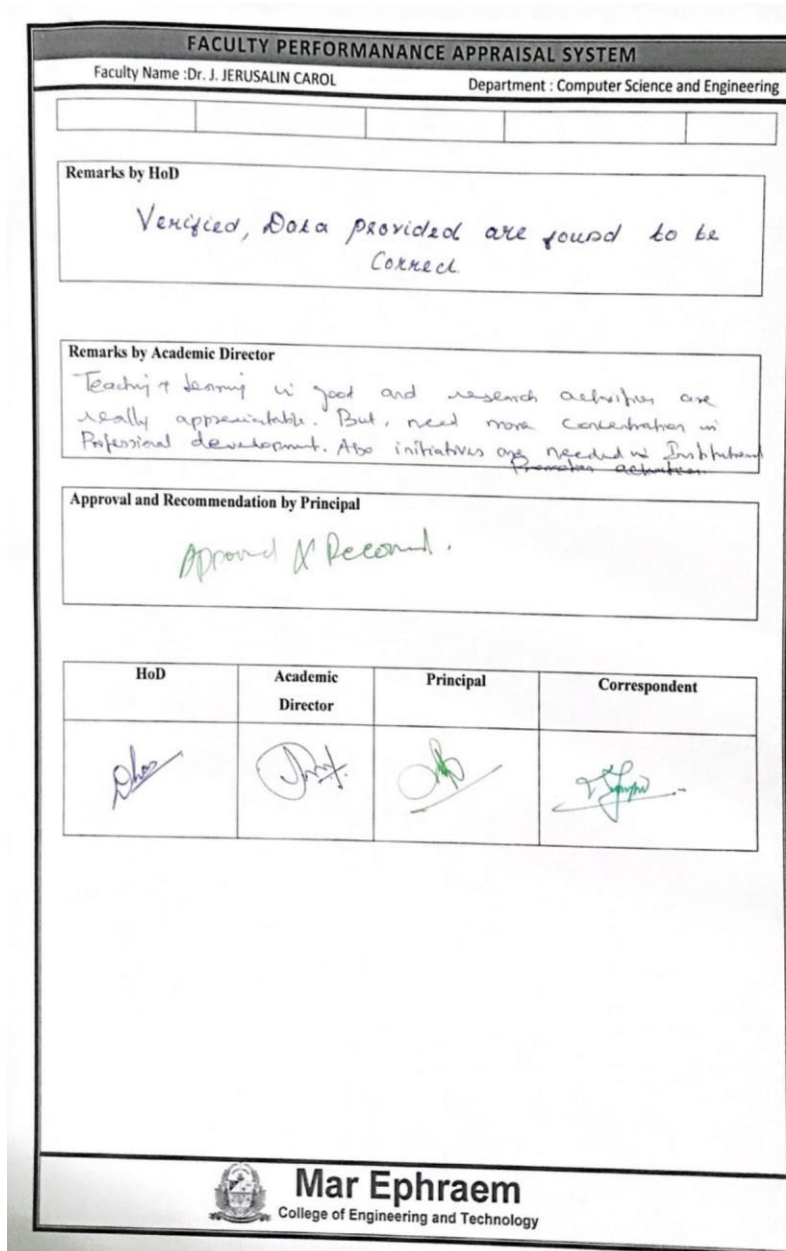 FACULTY PERFORMANANCE APPRAISAL SYSTEM
Faculty Name :Dr. J. JERUSALIN CAROL Department : Computer Science and Engineering
Remarks by HoD
Verified, Data provided are found to be
Correct.
Remarks by Academic Director
Teaching + learning is good and research activities are
really appreciatable. But, need more concentration in
Professional development. Also initiatives are needed in Institutional
Promotion activities.
Approval and Recommendation by Principal
Approved &
HoD Academic Director Principal Correspondent
Mar Ephraem
College of Engineering and Technology